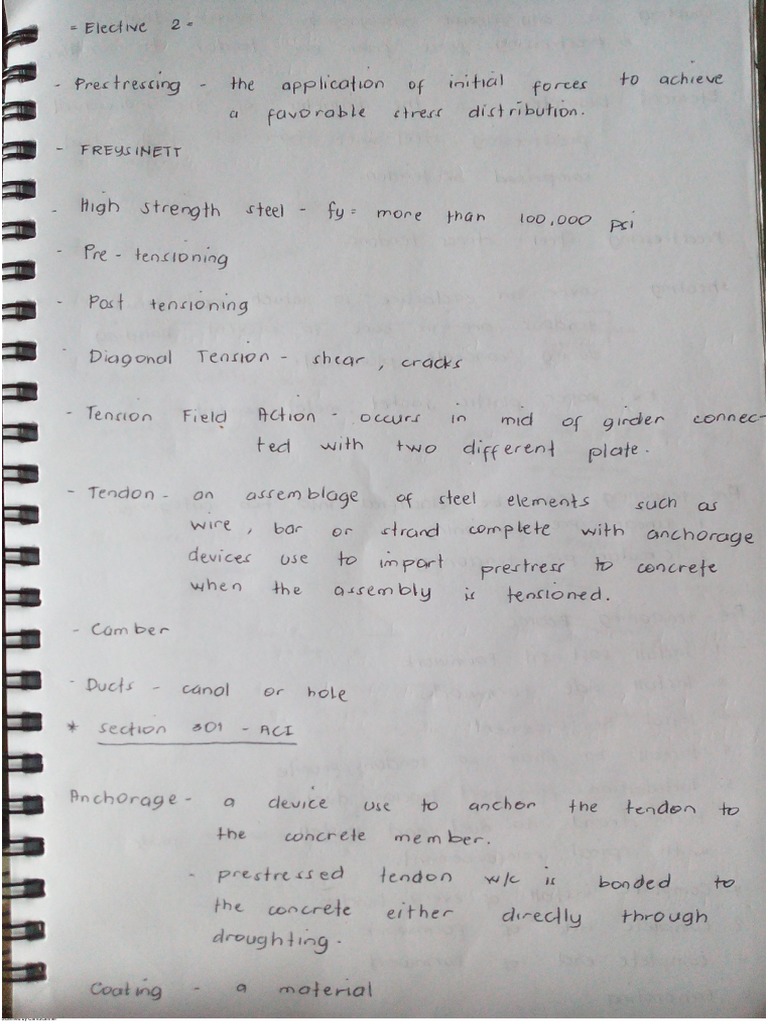 = Elective 2 =
- Prestressing - the application of initial forces to achieve
a favorable stress distribution.
- FREYSINETT
- High strength steel - fy = more than 100,000 psi
- Pre-tensioning
- Post tensioning
- Diagonal Tension - shear, cracks
- Tension Field Action - occurs in mid of girder connec-
ted with two different plate.
- Tendon - an assemblage of steel elements such as
wire, bar or strand complete with anchorage
devices use to impart prestress to concrete
when the assembly is tensioned.
- Camber
- Ducts - canal or hole
* section 301 - ACI
Anchorage - a device use to anchor the tendon to
the concrete member.
- prestressed tendon w/c is bonded to
the concrete either directly through
droughting.
Coating - a material